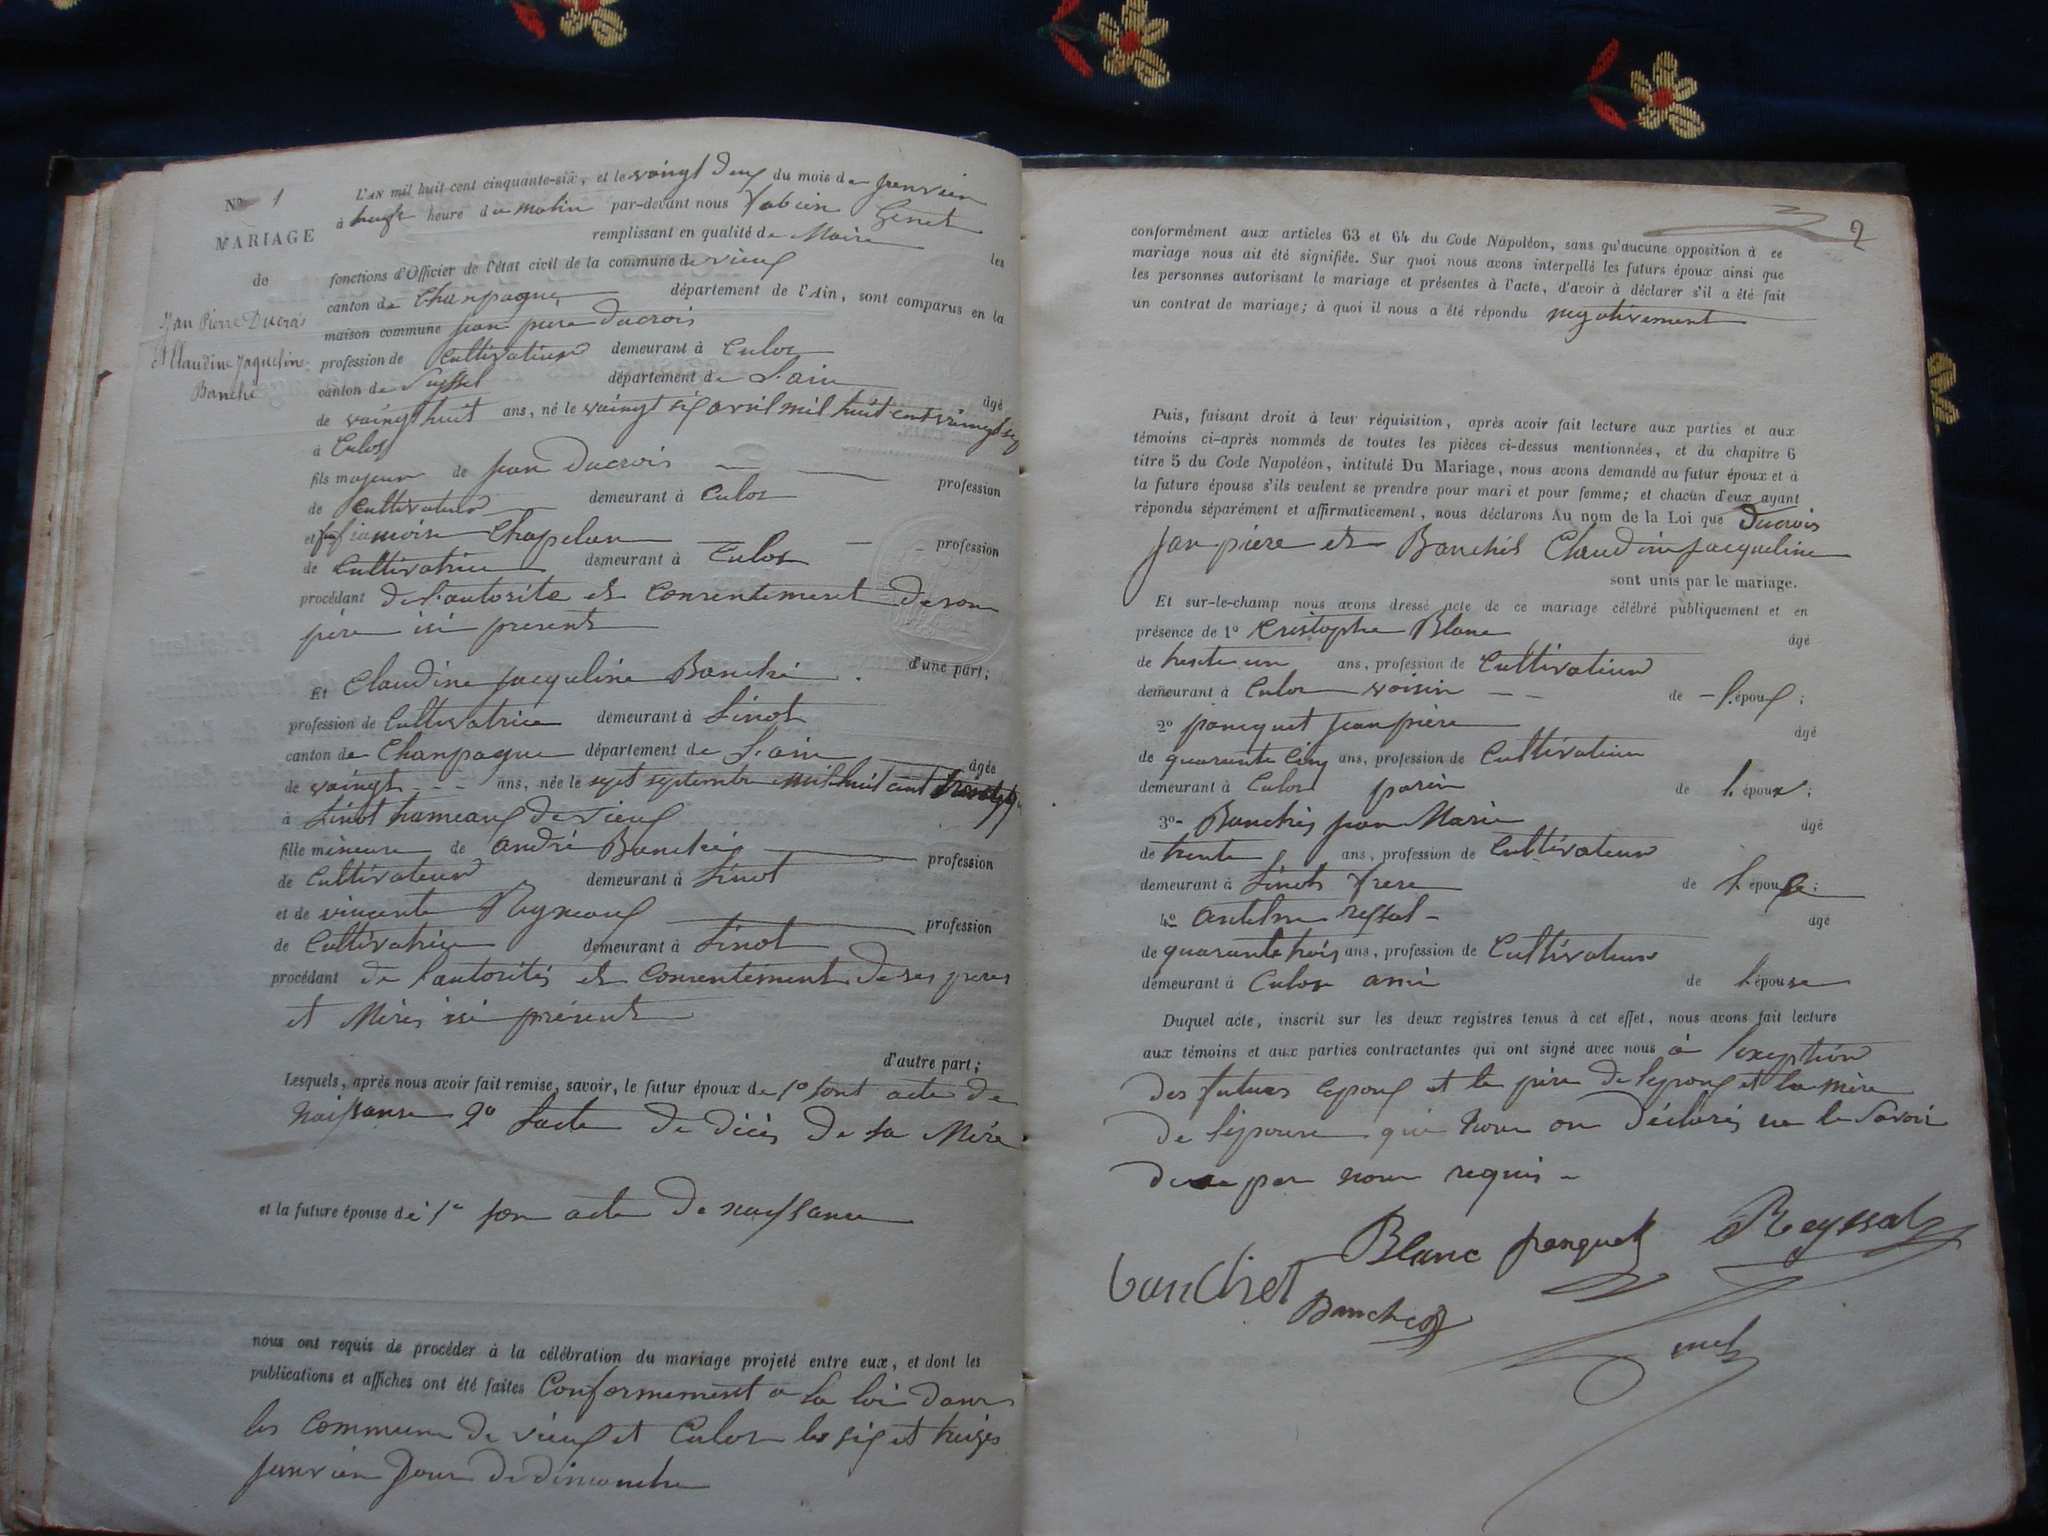 No 1
MARIAGE
de
Jean Pierre Ducrois
et Claudine Jaqueline
Banché
L'AN mil huit cent cinquante-six, et le vaingt deux du mois de janvier
à heure du matin par-devant nous Fabien Genet
remplissant en qualité de Maire les
fonctions d'Officier de l'état civil de la commune de vieux
canton de Chanpagne département de l'Ain, sont comparus en la
maison commune jean piere Ducrois
profession de Cultivateur demeurant à Culoz
canton de Seyssel département de L'ain âgé
de vaingt huit ans, né le vaingt six avril mil huit cent vaingt sep
à Culoz
fils majeur de jean Ducrois profession
de Cultivateur demeurant à Culoz
et Chapelan profession
de Cultivatrice demeurant à Culoz
procédant de l'autorite et Consentement de son
père isi present
d'une part;
Et Claudine jacqueline Banché
profession de Cultivatrice demeurant à Linot
canton de Chanpagne département de L'ain âgée
de vaingt ans, née le sept septembre mil huit cent
à Linot hameaux de vieux
fille mineure de andré Banchés profession
de Cultivateur demeurant à Linot
et de vincente Reyneaux profession
de Cultivatrice demeurant à Linot
procédant de l'autorités et Consentement de ses peres
et Meres isi présent
d'autre part;
Lesquels, après nous avoir fait remise, savoir, le futur époux de 1o sont acte de
naissance 2o l'acte de décès de sa Mère
et la future épouse de 1o son acte de naissance
nous ont requis de procéder à la célébration du mariage projeté entre eux, et dont les
publications et affiches ont été faites Conformement a la loi dans
les commune de vieux et Culoz les six et treizes
janvier jour de dimanche
2
conformément aux articles 63 et 64 du Code Napoléon, sans qu'aucune opposition à ce
mariage nous ait été signifiée. Sur quoi nous avons interpellé les futurs époux ainsi que
les personnes autorisant le mariage et présentes à l'acte, d'avoir à déclarer s'il a été fait
un contrat de mariage; à quoi il nous a été répondu negativement
Puis, faisant droit à leur réquisition, après avoir fait lecture aux parties et aux
témoins ci-après nommés de toutes les pièces ci-dessus mentionnées, et du chapitre 6
titre 5 du Code Napoléon, intitulé Du Mariage, nous avons demandé au futur époux et à
la future épouse s'ils veulent se prendre pour mari et pour femme; et chacun d'eux ayant
répondu séparément et affirmativement, nous déclarons Au nom de la Loi que Ducrois
jean piere et Banchés Claudine jacqueline
sont unis par le mariage.
Et sur-le-champ nous avons dressé acte de ce mariage célébré publiquement et en
présence de 1o Kristophe Blanc âgé
de trente un ans, profession de Cultivateur
demeurant à Culoz voisin de l'époux;
2o panquet jean pière âgé
de quarante Cinq ans, profession de Cultivateur
demeurant à Culoz parin de l'époux;
3o Banchés jean Marie âgé
de trente ans, profession de Cultivateur
demeurant à Linot frere de l'épouse;
4o antelme reyssal âgé
de quarante trois ans, profession de Cultivateur
demeurant à Culoz ami de l'épouse
Duquel acte, inscrit sur les deux registres tenus à cet effet, nous avons fait lecture
aux témoins et aux parties contractantes qui ont signé avec nous à l'exeption
des futurs epoux et le père de l'epoux et la mère
de l'épouse qui nous on déclarés ne le savoir
de ce par nous requis
Blanc panquet Reyssal
banchet Banchet